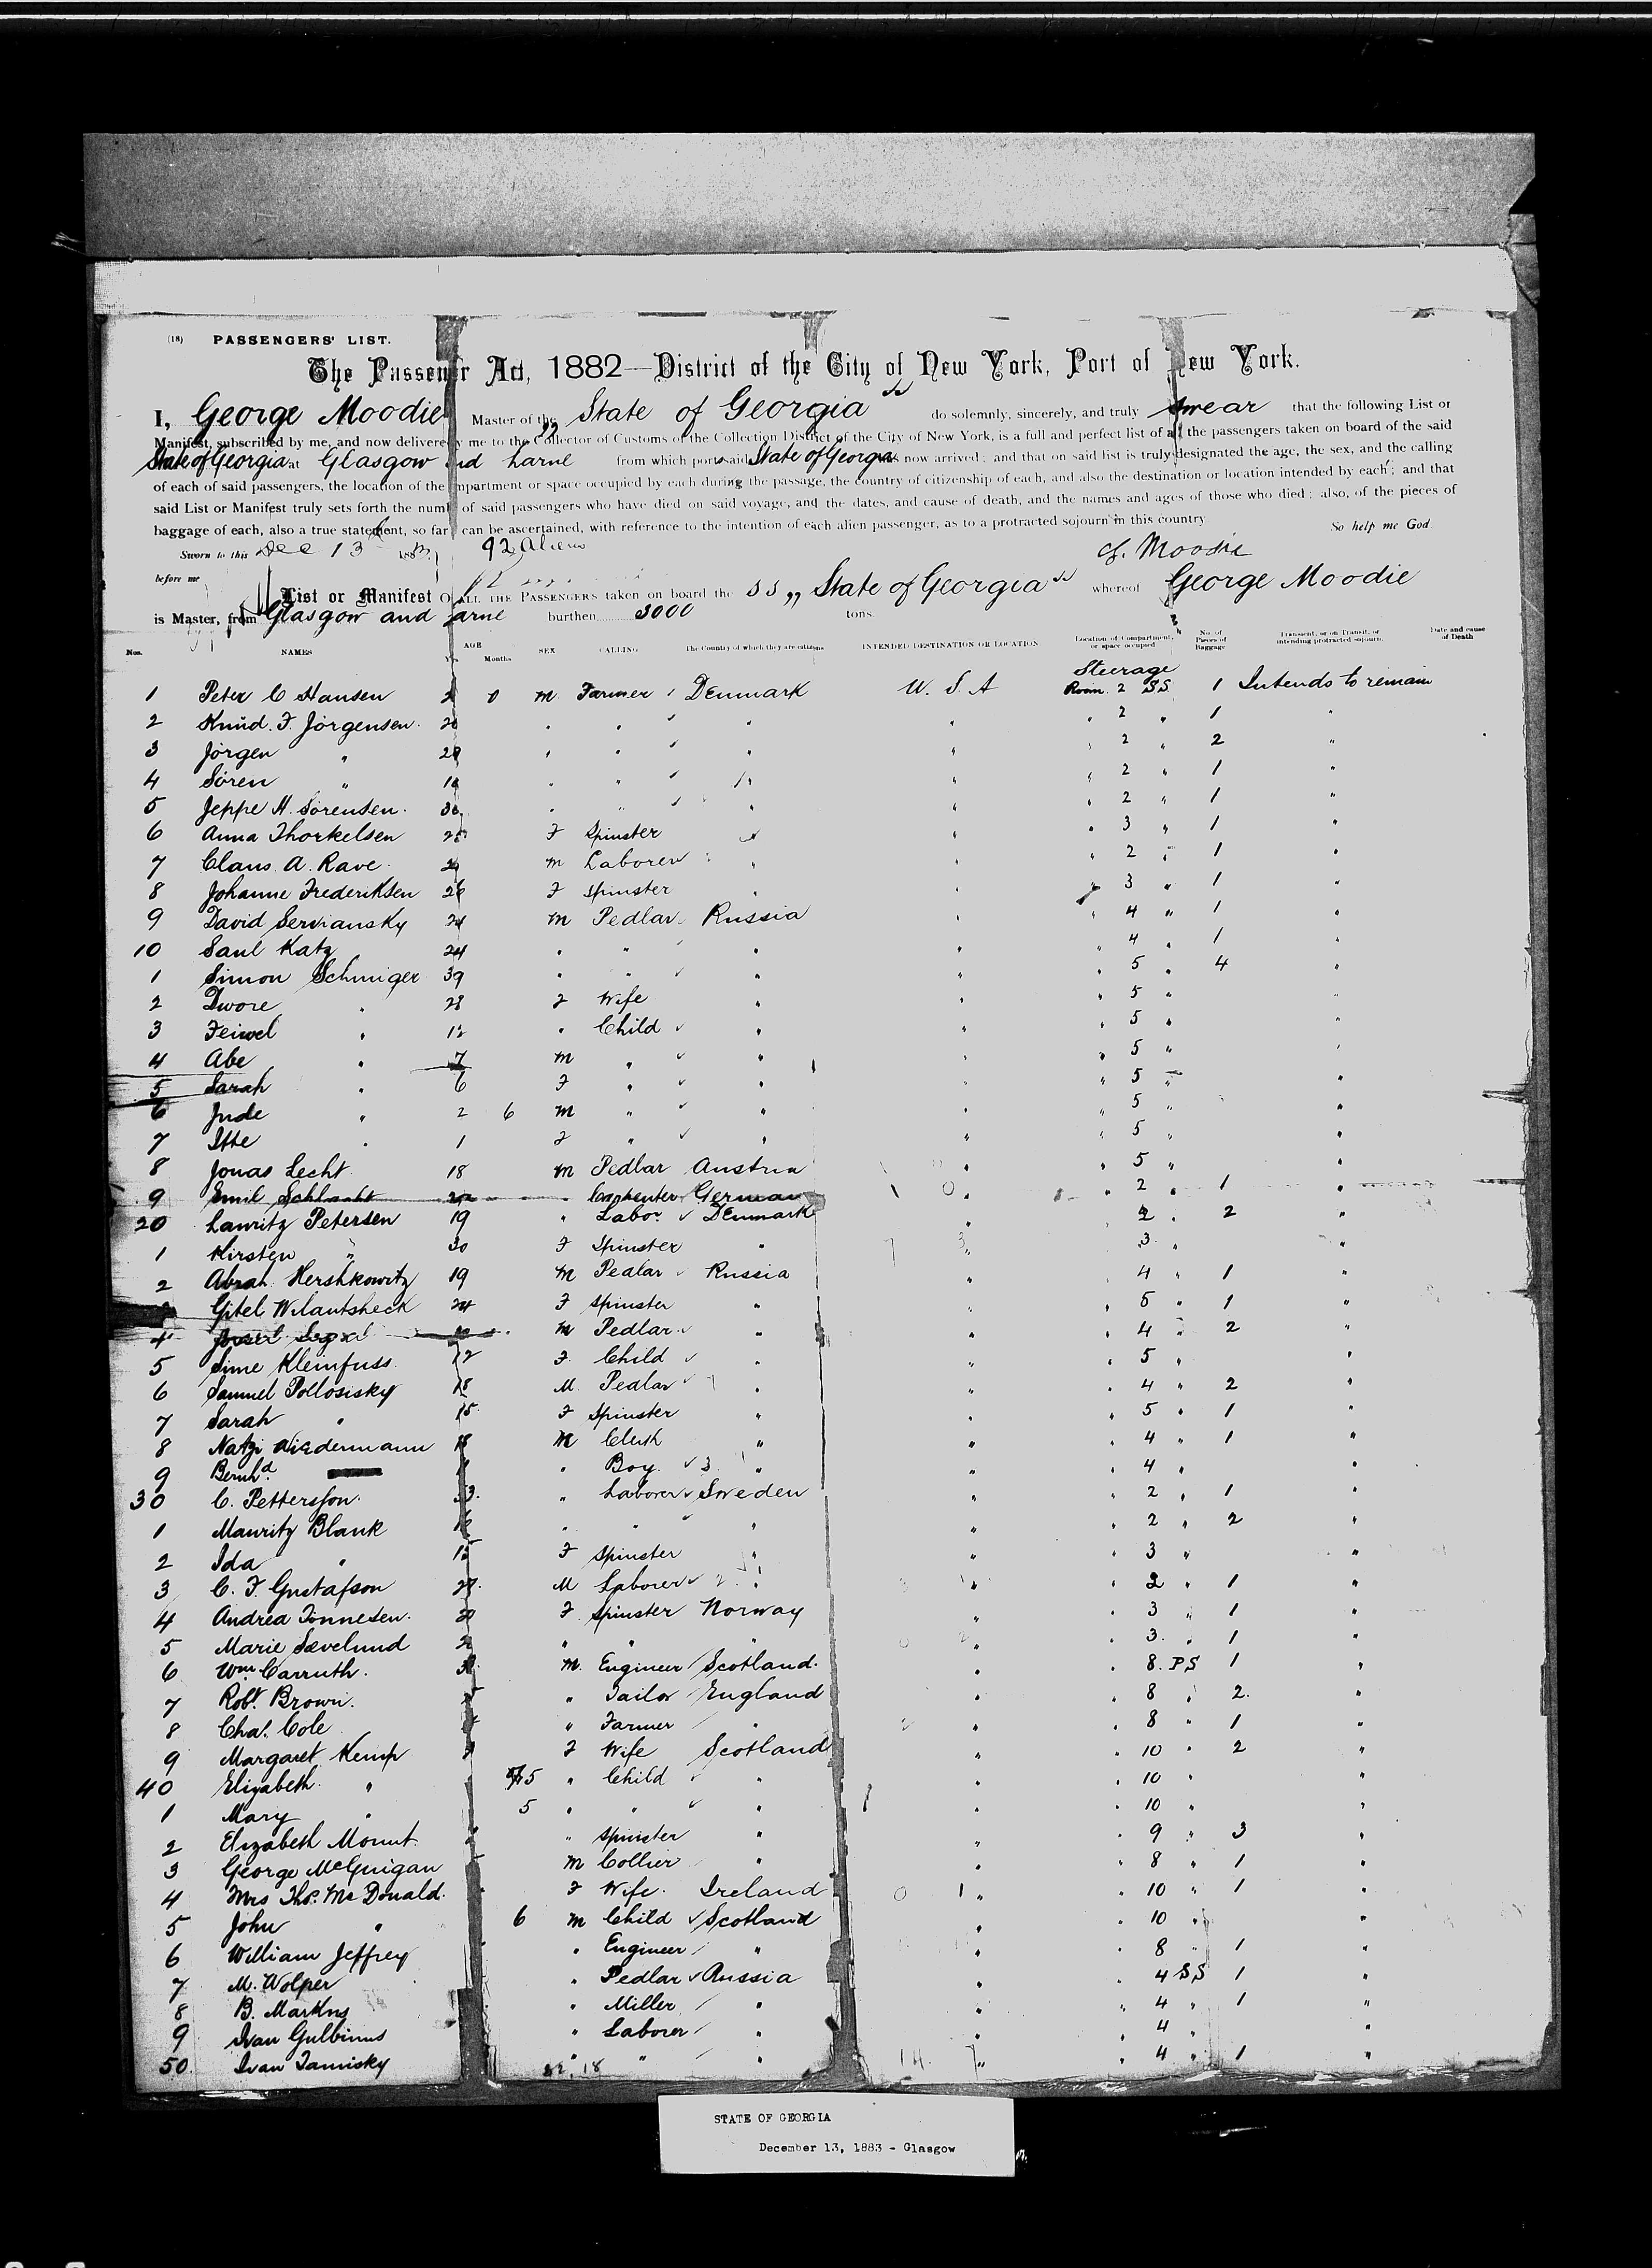 (18) PASSENGERS' LIST.
The Passenger Act, 1882—District of the City of New York, Port of New York.
I, George Moodie Master of the „State of Georgia" do solemnly, sincerely, and truly swear that the following List or
Manifest, subscribed by me, and now delivered by me to the Collector of Customs of the Collection District of the City of New York, is a full and perfect list of all the passengers taken on board of the said
State of Georgia at Glasgow and Larne from which port said State of Georgia has now arrived; and that on said list is truly designated the age, the sex, and the calling
of each of said passengers, the location of the compartment or space occupied by each during the passage, the country of citizenship of each, and also the destination or location intended by each; and that
said List or Manifest truly sets forth the number of said passengers who have died on said voyage, and the dates, and cause of death, and the names and ages of those who died; also, of the pieces of
baggage of each, also a true statement, so far as can be ascertained, with reference to the intention of each alien passenger, as to a protracted sojourn in this country. So help me God.
Sworn to this Dec 13 1883 92 Aliens G. Moodie
before me
List or Manifest OF ALL THE PASSENGERS taken on board the SS „State of Georgia" whereof George Moodie
is Master, from Glasgow and Larne burthen 3000 tons.
Nos. NAMES AGE Yrs. Months SEX CALLING The Country of which they are citizens INTENDED DESTINATION OR LOCATION Location of Compartment, or space occupied No. of Pieces of Baggage Transient, or on Transit, or intending protracted sojourn. Date and cause of Death
Steerage
1 Peter C Hansen 0 m Farmer Denmark U.S.A Room 2 SS 1 Intends to remain
2 Knud. F. Jorgensen " " " " " 2 " 1 "
3 Jorgen " " " " " " 2 " 2 "
4 Soren " " " " " " 2 " 1 "
5 Jeppe H. Sorensen " " " " " 2 " 1 "
6 Anna Thorkelsen F Spinster " " " 3 " 1 "
7 Claus A. Rave m Laborer " " " 2 " 1 "
8 Johanne Frederiksen 26 F Spinster " " " 3 " 1 "
9 David Serviansky m Pedlar Russia " " 4 " 1 "
10 Saul Katz 24 " " " " " 4 " 1 "
1 Simon Schmiger 39 " " " " " 5 " 4 "
2 Dwore " 28 F Wife " " " 5 " "
3 Feiwel " 12 " Child " " " 5 " "
4 Abe " 7 m " " " " 5 " "
5 Sarah " 6 F " " " " 5 " "
6 Jude " 2 6 m " " " " 5 " "
7 Itte " 1 F " " " " 5 " "
8 Jonas Lecht 18 m Pedlar Austria " " 5 " "
9 Emil Schlacht " Carpenter German " " 2 " 1 "
20 Lauritz Petersen 19 " Labor Denmark " " 2 " 2 "
1 Kirsten " 30 F Spinster " " 3 " "
2 Abrah Hershkowitz 19 m Pedlar Russia " 4 " 1 "
Gitel Wilantsheck 24 F Spinster " " " 5 " 1 "
4 m Pedlar " " " 4 " 2 "
5 Sime Kleinfuss 12 F Child " " " 5 " "
6 Samuel Pollosisky 18 M Pedlar " " " 4 " 2 "
7 Sarah " 15 F Spinster " " " 5 " 1 "
8 Natzi Niedermann 18 m Clerk " " " 4 " 1 "
9 Bernhd. " Boy " " " 4 " "
30 C. Pettersson " Laborer Sweden " " 2 " 1 "
1 Mauritz Blank " " " " " 2 " 2 "
2 Ida " F Spinster " " " 3 " "
3 C. F. Gustafson M Laborer " " " 2 " 1 "
4 Andrea Tonnesen F Spinster Norway " " 3 " 1 "
5 Marie Sævelund " " " " " 3 " 1 "
6 Wm Carruth M. Engineer Scotland " " 8 PS 1 "
7 Robt. Brown " Tailor England " " 8 " 2 "
8 Chas. Cole " Farmer " " " 8 " 1 "
9 Margaret Kemp F Wife Scotland " " 10 " 2 "
40 Elizabeth " " Child " " " 10 " "
1 Mary " 5 " " " " " 10 " "
2 Elizabeth Mount " Spinster " " " 9 " 3 "
3 George McGuigan m Collier " " " 8 " 1 "
4 Mrs Thos. McDonald F Wife Ireland " " 10 " 1 "
5 John " 6 m Child Scotland " " 10 " "
6 William Jeffrey " Engineer " " " 8 " 1 "
7 M. Wolper " Pedlar Russia " " 4 SS 1 "
8 B. Markus " Miller " " " 4 " 1 "
9 Ivan Gulbinus " Laborer " " " 4 " "
50 Ivan Tamisky " " " " " 4 " 1 "
STATE OF GEORGIA
December 13, 1883 - Glasgow